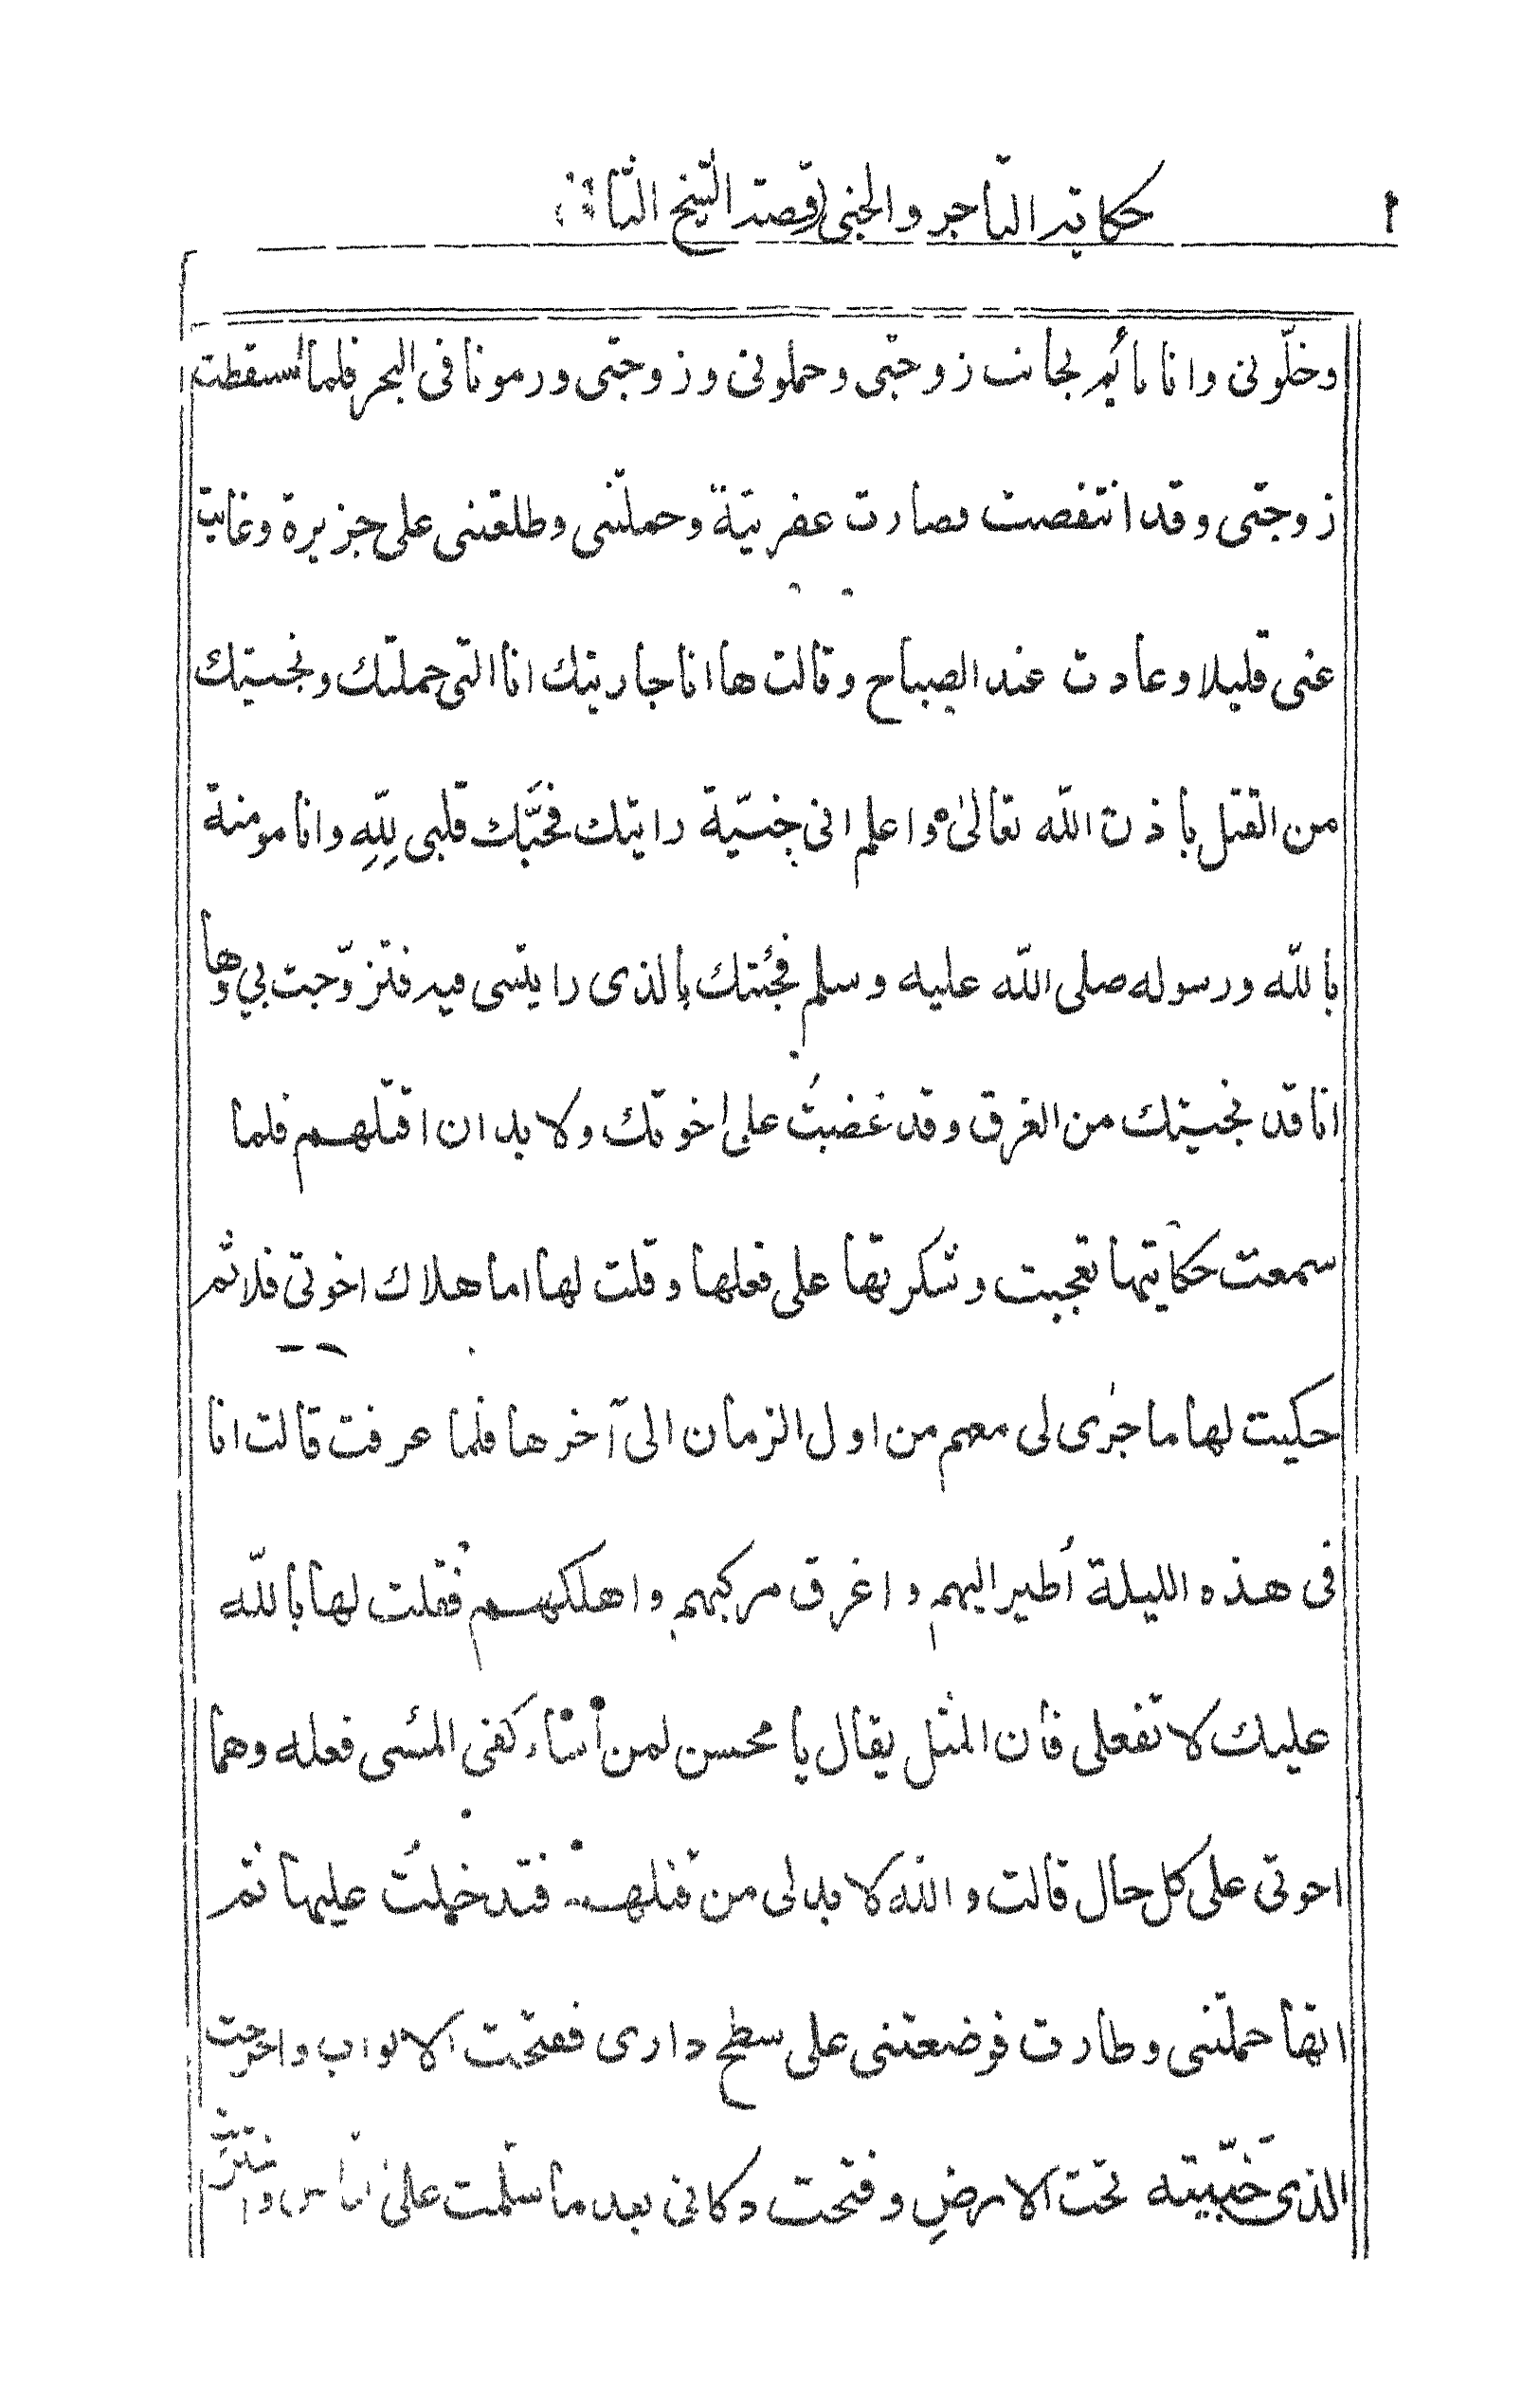 حكاية التاجر والجنى (قصة الشيخ الثا
١
وخلّونى وانا نائم بجانب زوجتى وحملونى وزوجتى ورمونا فى البحر فلما أسقطت
زوجتى وقد انتفضت فصارت عفريتة وحملتنى وطلعتنى على جزيرة وغابت
عنى قليلا وعادت عند الصباح وقالت ها انا جاريتك انا التى حملتك ونجيتك
من القتل باذن اللّه تعالىٰ واعلم انى جنيّة رايتك فحبّك قلبى للّهِ وانا مومنة
باللّه ورسوله صلى اللّه عليه وسلم فجئتك بالذى رايتنى فيه فتزوّجت بي وها
انا قد نجيتك من الغرق وقد غضبتُ على اخوتك ولا بد ان اقتلهم فلما
سمعت حكايتها تعجبت وشكرتها على فعلها وقلت لها اما هلاك اخوتى فلا ثم
حكيت لها ما جرٰى لى معهم من اول الزمان الى آخرها فلما عرفت قالت انا
فى هذه الليلة أطير اليهم واغرق مركبهم واهلكهم فقلت لها باللّه
عليك لا تفعلى فان المثل يقال يا محسن لمن أساء كفى المسئى فعله وهما
اخوتى على كل حال قالت واللّه لا بد لى من قتلهم فتدخلتُ عليها ثم
انها حملتنى وطارت فوضعتنى على سطح دارى ففتحت الابواب واخرجت
الذى خَبّيته تحت الارضِ وفتحت دكانى بعد ما سلّمت علىٰ الناس و